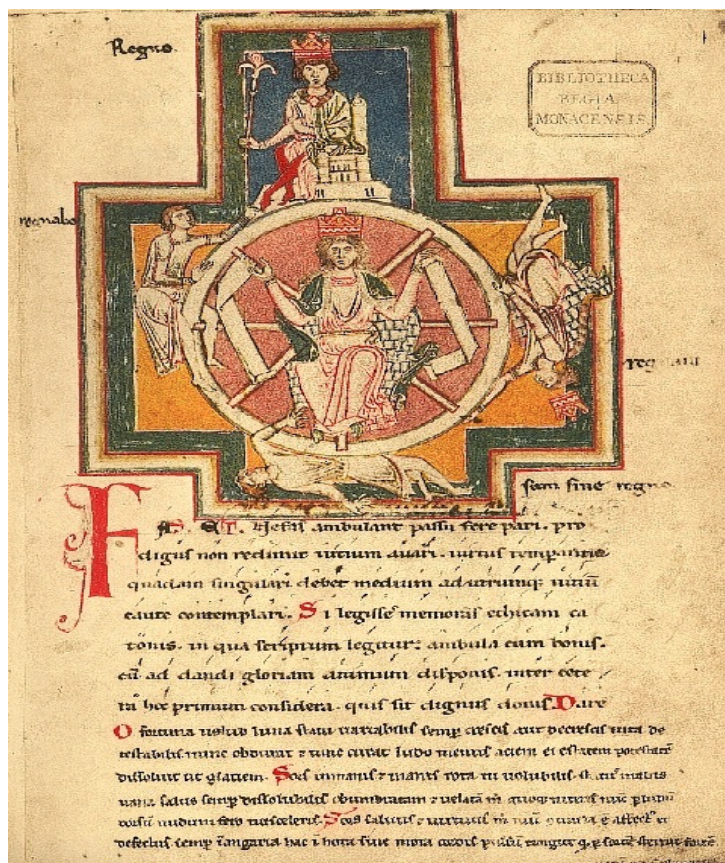 Regno.
BIBLIOTHECA
REGIA
MONACENSIS.
regnabo
regnaui
sum sine regno
FAS ET Nefas ambulant passu fere pari. pro
digus non redimit uitium auari. uirtus temperantia
quadam singulari debet medium ad utrumq; uitiū
caute contemplari. Si legisse memoras ethicam ca
tonis. in qua scriptum legitur: ambula cum bonis.
cū ad dandi gloriam animum disponis. inter cete
ra hec primum considera. quis sit dignus donis. Dare
O fortuna uelut luna statu uariabilis semp crescis aut decrescis uita de
testabilis nunc obdurat & tunc curat ludo mentis aciem egestatem potestatē
dissoluit ut glaciem. Sors inmanis & inanis rota tu uolubilis status malus
uana salus semp dissolubilis obumbratam & uelatā m quoq;
dorsū nudum fero tui sceleris. Sors salutis & uirtutis m
defectus semp ī angaria hac ī hora sine mora